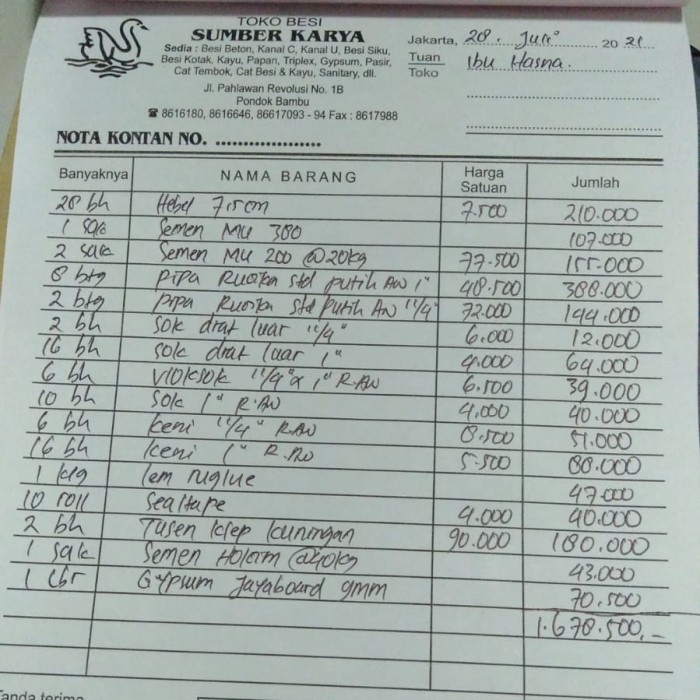 TOKO BESI
SUMBER KARYA
Sedia : Besi Beton, Kanal C, Kanal U, Besi Siku,
Besi Kotak, Kayu, Papan, Triplex, Gypsum, Pasir,
Cat Tembok, Cat Besi & Kayu, Sanitary, dll.
Jl. Pahlawan Revolusi No. 1B
Pondok Bambu
☎ 8616180, 8616646, 86617093 - 94 Fax : 8617988
Jakarta, 28. Juli 2021
Tuan
Toko Ibu Hasna.
NOTA KONTAN NO. ....................
Banyaknya NAMA BARANG Harga Satuan Jumlah
28 bh Hebel 7,5cm 7.500 210.000
1 sak Semen MU 380 107.000
2 sak Semen MU 200 @20kg 77.500 155.000
8 btg pipa Rucika std putih AW 1" 48.500 388.000
2 btg pipa Rucika std putih AW 1 1/4" 72.000 144.000
2 bh sok drat luar 1 1/4" 6.000 12.000
16 bh sok drat luar 1" 4.000 64.000
6 bh vloksok 1 1/4" x 1" R.AW 6.500 39.000
10 bh sok 1" R.AW 4.000 40.000
6 bh keni 1 1/4" R.AW 8.500 51.000
16 bh keni 1" R.AW 5.500 88.000
1 klg lem ruglue 47.000
10 roll sealtape 4.000 40.000
2 bh Tusen klep kuningan 90.000 180.000
1 sak Semen Holcim @40kg 43.000
1 lbr Gypsum Jayaboard 9mm 70.500
1.678.500,-
Tanda terima